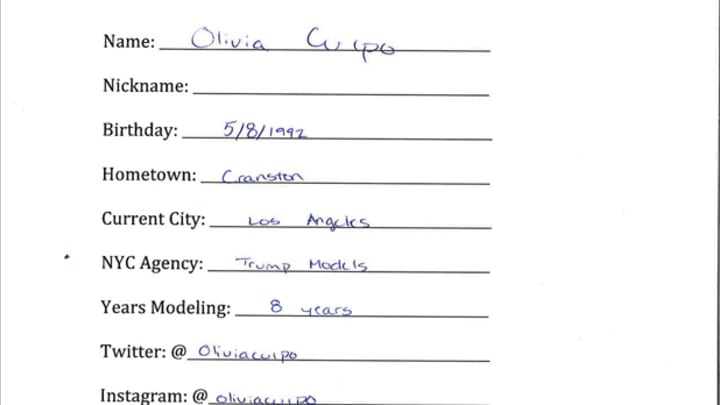 Name: Olivia Culpo
Nickname:
Birthday: 5/8/1992
Hometown: Cranston
Current City: Los Angeles
NYC Agency: Trump Models
Years Modeling: 8 years
Twitter: @ Oliviaculpo
Instagram: @ oliviaculpo